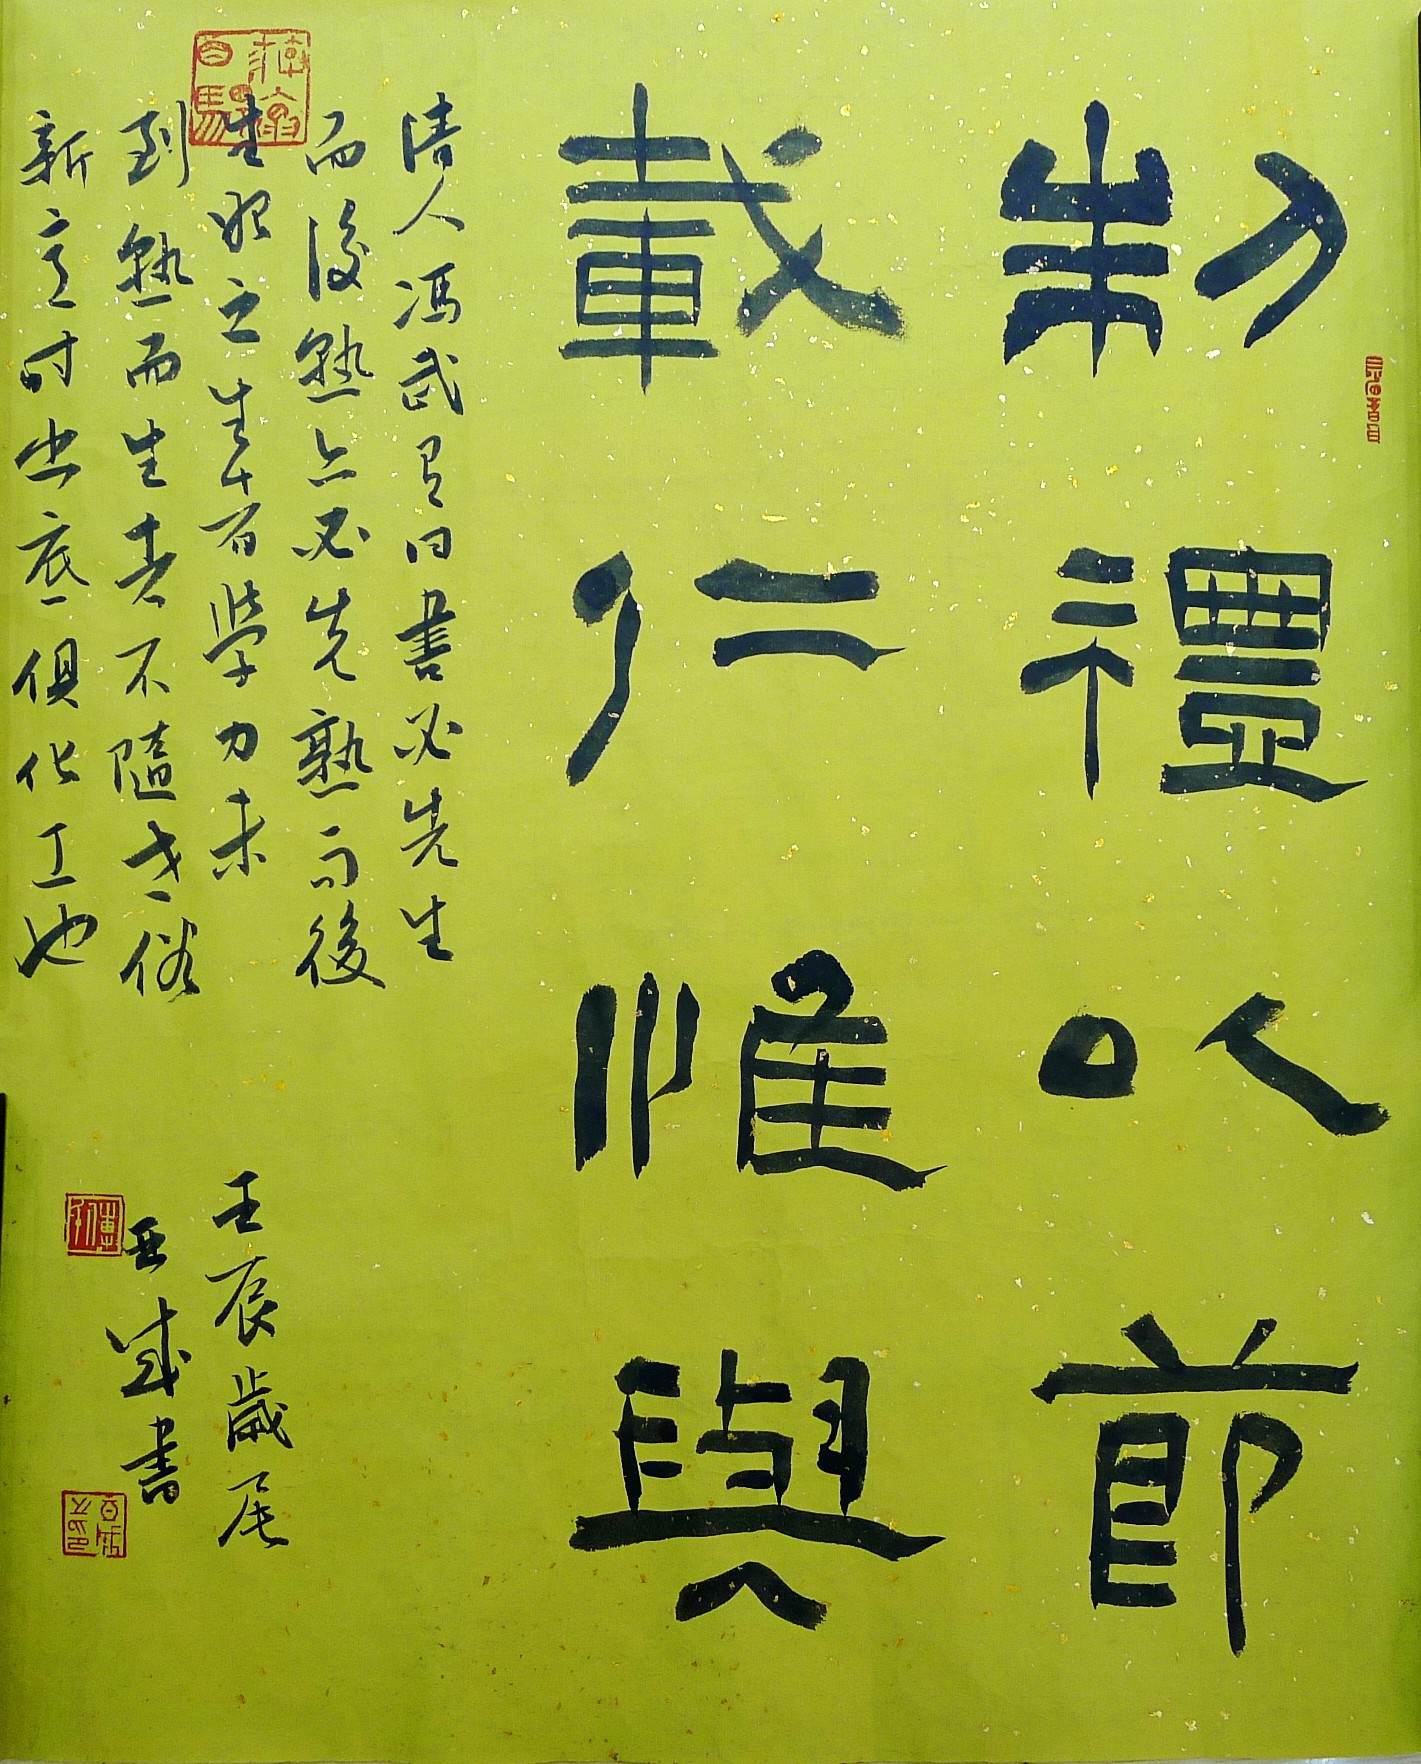 制禮以節
載仁惟與
清人馮武有曰書必先生
而後熟亦必先熟而後
生始之生者學力未
到熟而生者不隨世俗
新意时出底俱化工也
壬辰歲尾
亞成書